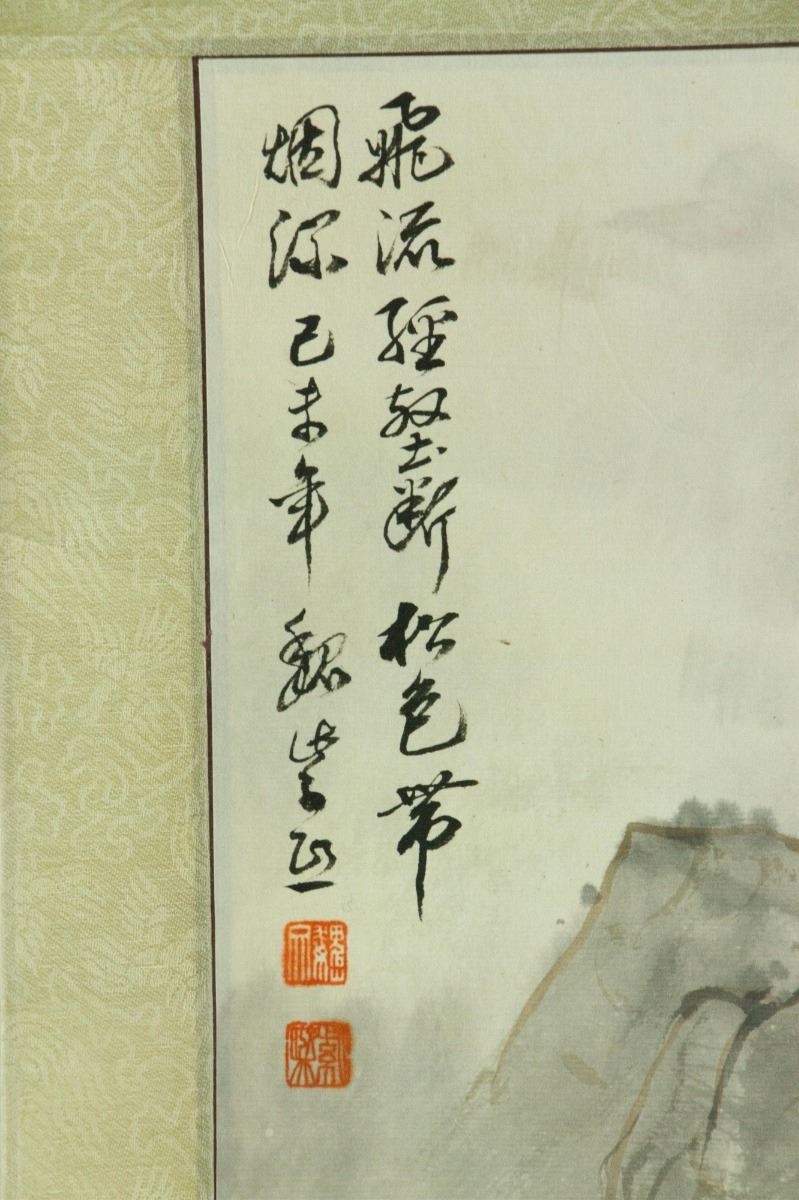 飛流經壑斷松色帶
烟深己未年魏紫熙